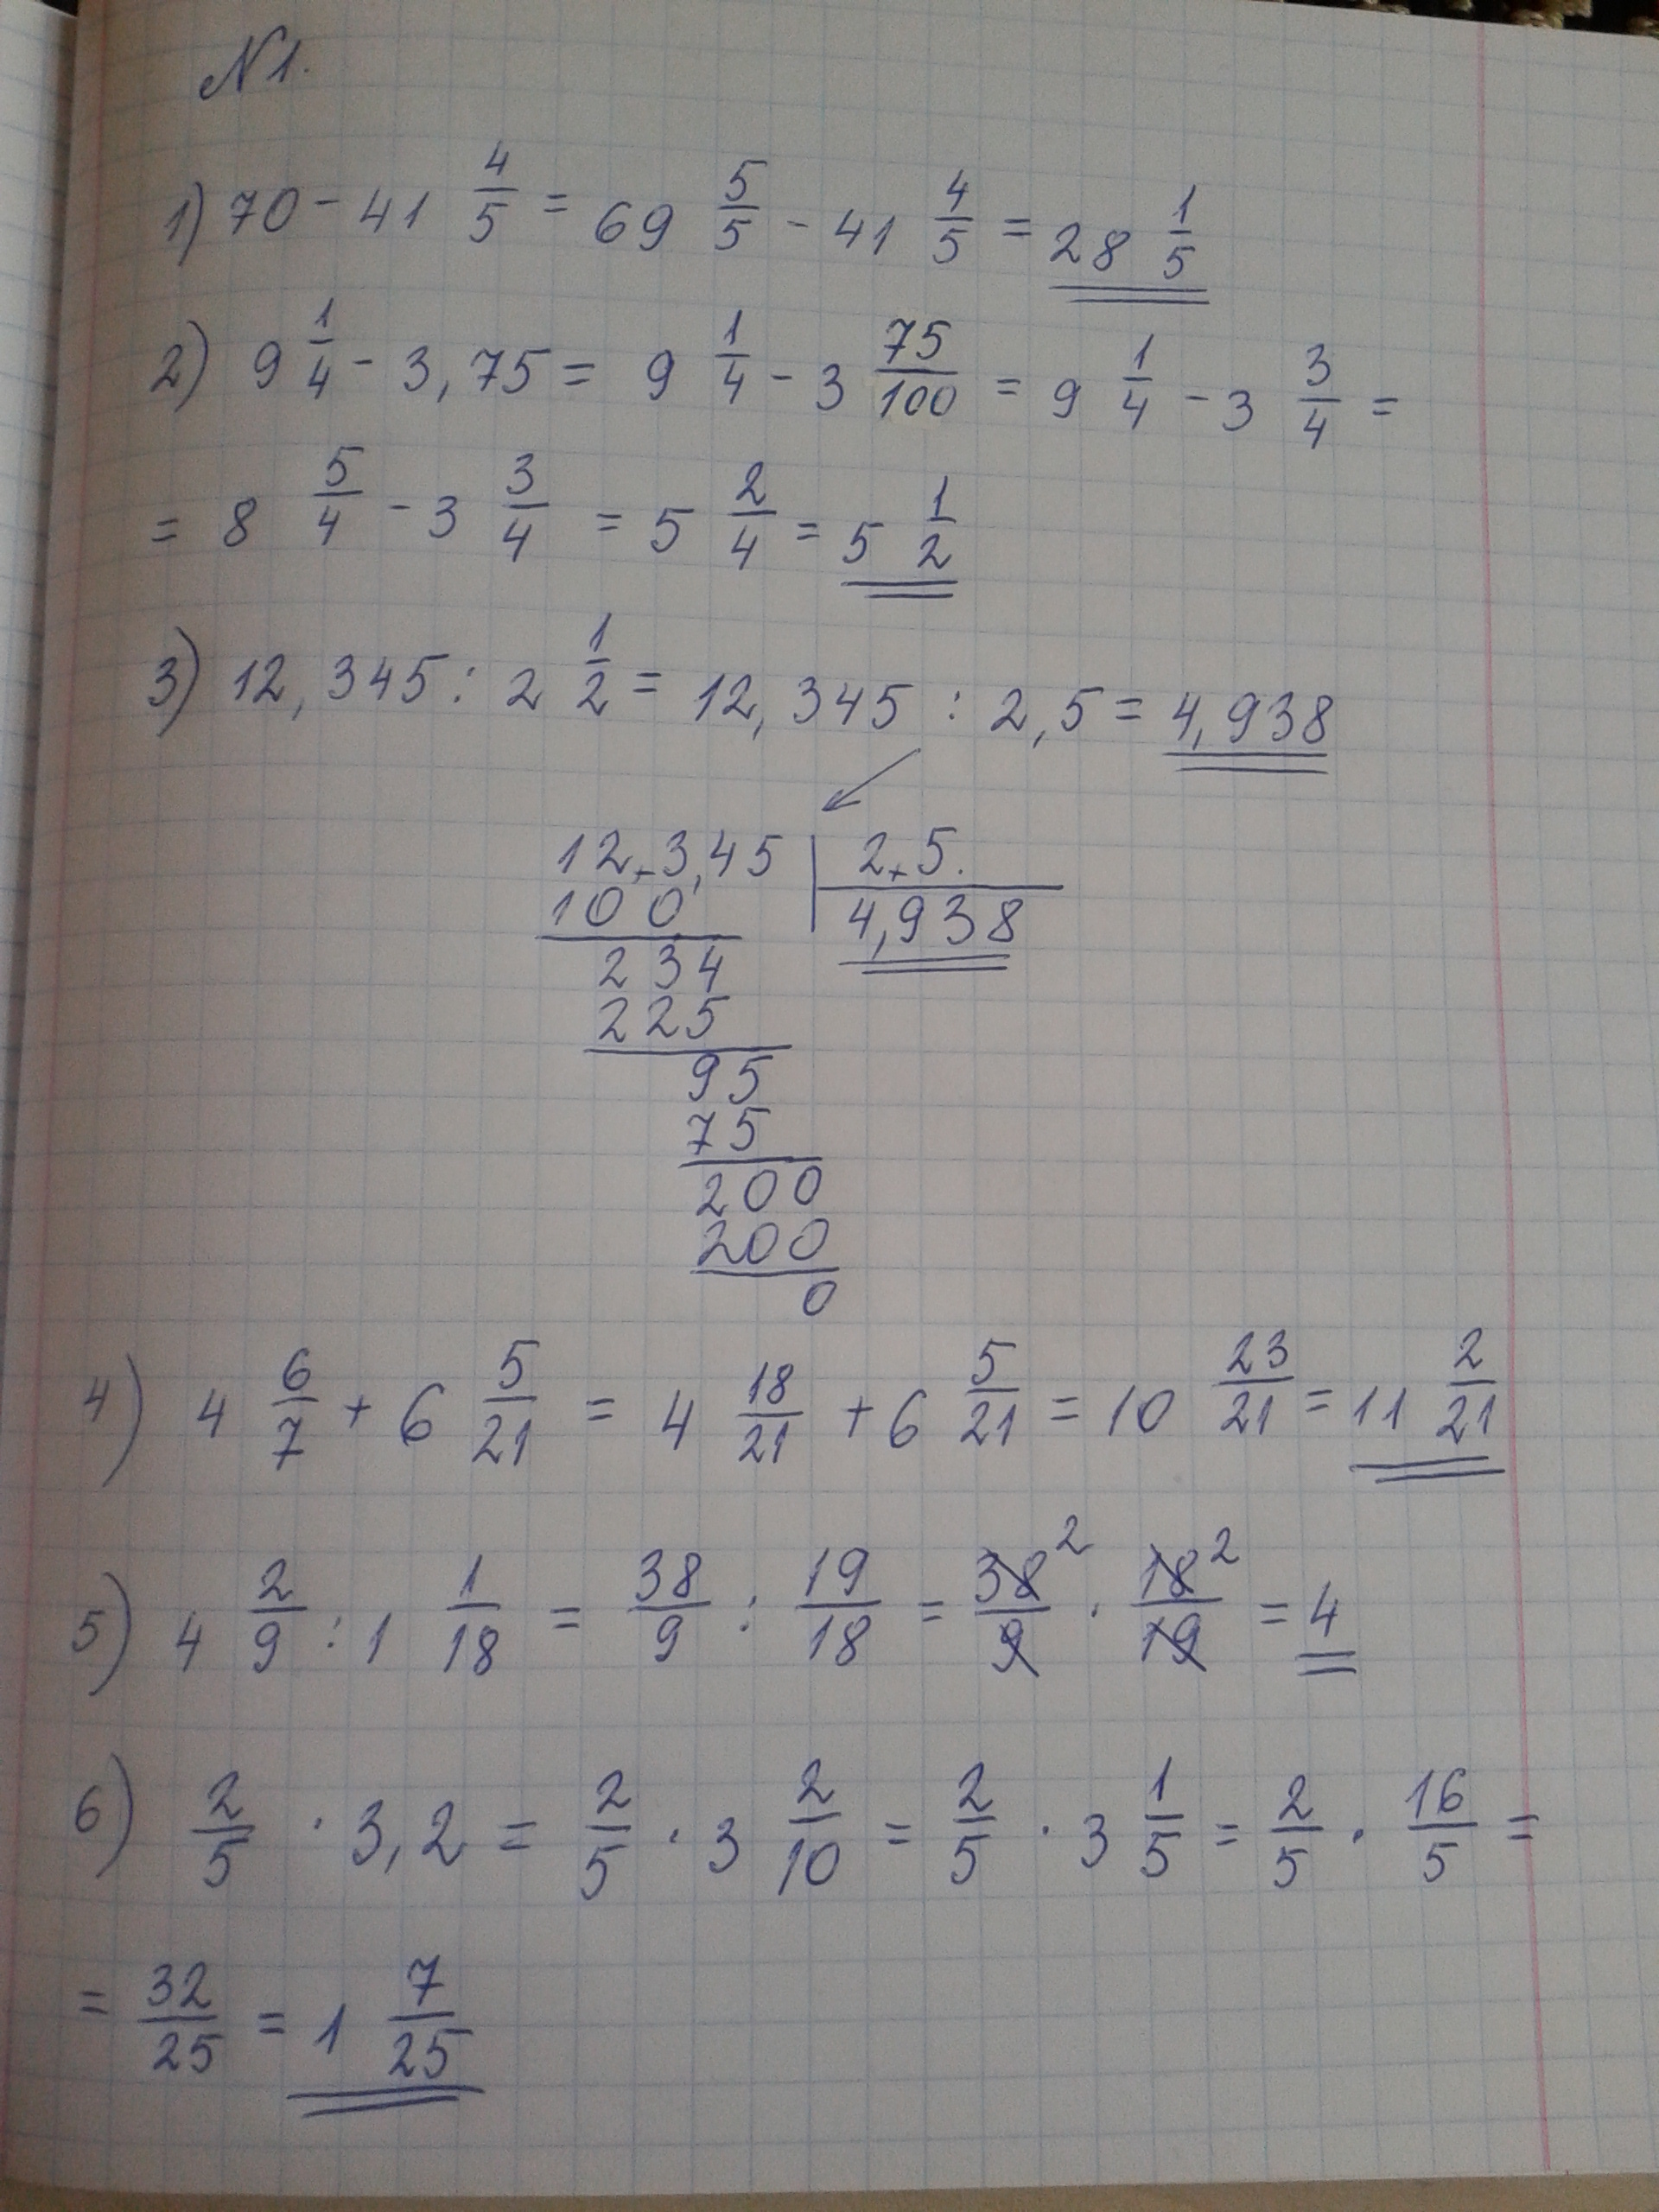 №1.
1) 70 - 41 4/5 = 69 5/5 - 41 4/5 = 28 1/5
2) 9 1/4 - 3,75 = 9 1/4 - 3 75/100 = 9 1/4 - 3 3/4 =
= 8 5/4 - 3 3/4 = 5 2/4 = 5 1/2
3) 12,345 : 2 1/2 = 12,345 : 2,5 = 4,938
12,3,45 | 2,5.
100 | 4,938
234
225
95
75
200
200
0
4) 4 6/7 + 6 5/21 = 4 18/21 + 6 5/21 = 10 23/21 = 11 2/21
5) 4 2/9 : 1 1/18 = 38/9 : 19/18 = 38 2/9 · 18 2/19 = 4
6) 2/5 · 3,2 = 2/5 · 3 2/10 = 2/5 · 3 1/5 = 2/5 · 16/5 =
= 32/25 = 1 7/25